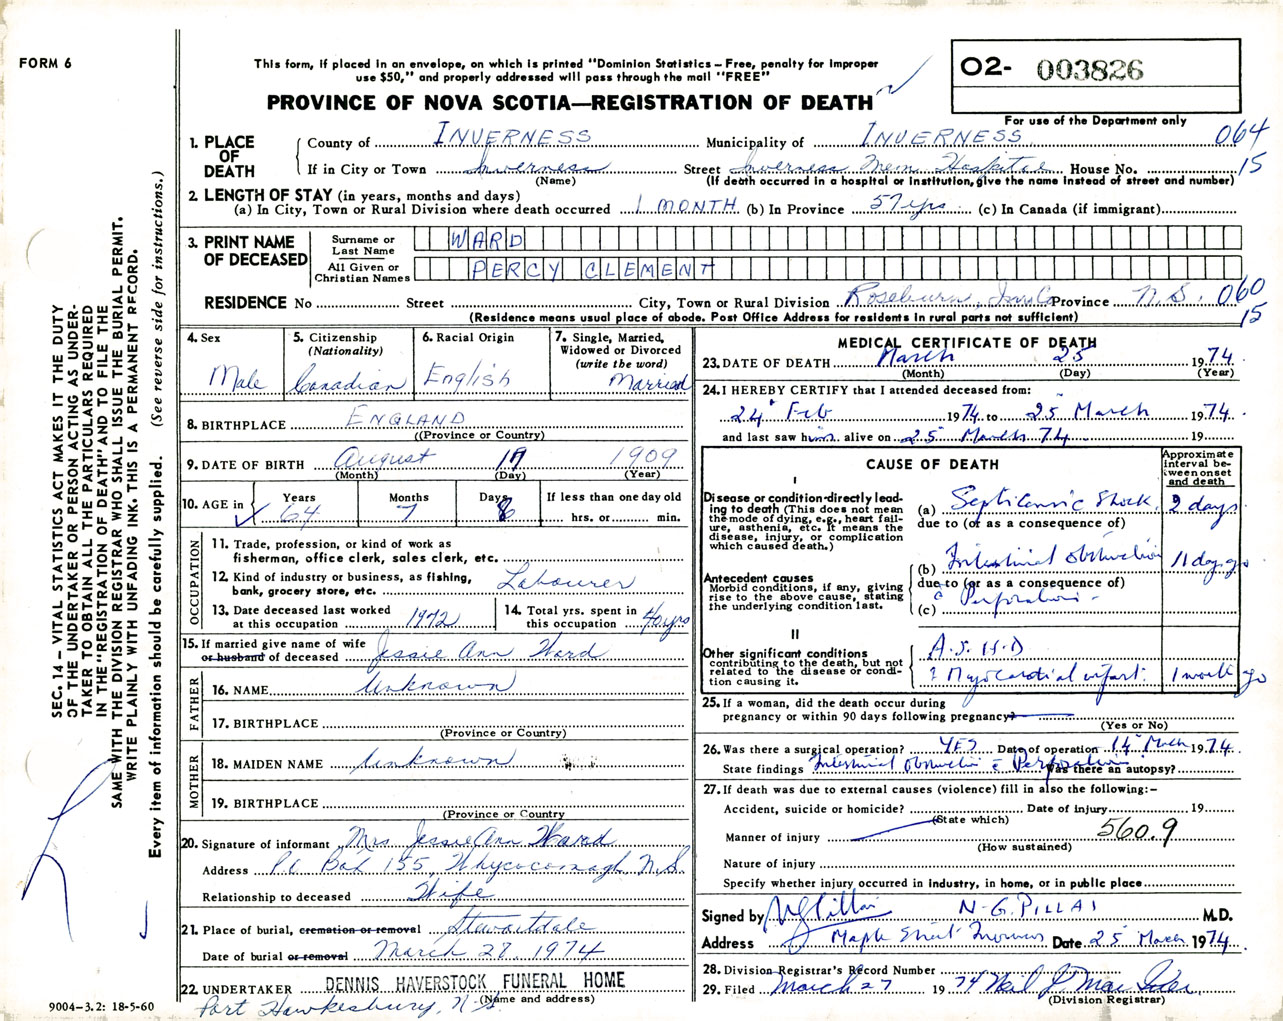 FORM 6
This form, if placed in an envelope, on which is printed "Dominion Statistics – Free, penalty for improper
use $50," and properly addressed will pass through the mail "FREE"
O2- 003826
PROVINCE OF NOVA SCOTIA—REGISTRATION OF DEATH
For use of the Department only
1. PLACE OF DEATH { County of INVERNESS Municipality of INVERNESS 064
If in City or Town Inverness Street Inverness Mem. Hospital House No. 15
(Name) (If death occurred in a hospital or institution, give the name instead of street and number)
2. LENGTH OF STAY (in years, months and days)
(a) In City, Town or Rural Division where death occurred 1 MONTH (b) In Province 57 yrs. (c) In Canada (if immigrant)
3. PRINT NAME OF DECEASED
Surname or Last Name WARD
All Given or Christian Names PERCY CLEMENT
RESIDENCE No Street City, Town or Rural Division Roseburn, Inv. Co Province N.S. 060
(Residence means usual place of abode. Post Office Address for residents in rural parts not sufficient) 15
4. Sex Male
5. Citizenship (Nationality) Canadian
6. Racial Origin English
7. Single, Married, Widowed or Divorced (write the word) Married
8. BIRTHPLACE ENGLAND
((Province or Country)
9. DATE OF BIRTH August 17 1909
(Month) (Day) (Year)
10. AGE in Years 64 Months 7 Days 8 If less than one day old
hrs. or min.
OCCUPATION
11. Trade, profession, or kind of work as
fisherman, office clerk, sales clerk, etc.
12. Kind of industry or business, as fishing,
bank, grocery store, etc. Labourer
13. Date deceased last worked
at this occupation 1972
14. Total yrs. spent in
this occupation 40 yrs
15. If married give name of wife
or husband of deceased Jessie Ann Ward
FATHER
16. NAME Unknown
17. BIRTHPLACE
(Province or Country)
MOTHER
18. MAIDEN NAME Unknown
19. BIRTHPLACE
(Province or Country
20. Signature of informant Mrs Jessie Ann Ward
Address P.O Box 155, Whycocomagh N.S.
Relationship to deceased Wife
21. Place of burial, cremation or removal Stewartdale
Date of burial or removal March 28, 1974
22. UNDERTAKER DENNIS HAVERSTOCK FUNERAL HOME
(Name and address)
Port Hawkesbury, N.S.
9004-3.2: 18-5-60
MEDICAL CERTIFICATE OF DEATH
23. DATE OF DEATH March 25 1974
(Month) (Day) (Year)
24. I HEREBY CERTIFY that I attended deceased from:
24 Feb 1974 to 25 March 1974.
and last saw him alive on 25 March 74 19
CAUSE OF DEATH
Approximate interval between onset and death
I
Disease or condition directly leading to death (This does not mean the mode of dying, e.g., heart failure, asthenia, etc. It means the disease, injury, or complication which caused death.)
(a) Septicaemic Shock. 2 days
due to (or as a consequence of)
(b) Intestinal obstruction 11 days
due to (or as a consequence of)
(c) Perforation -
Antecedent causes
Morbid conditions, if any, giving rise to the above cause, stating the underlying condition last.
II
Other significant conditions
contributing to the death, but not related to the disease or condition causing it.
A.S.H.D
? Myocardial infarct. 1 week ago
25. If a woman, did the death occur during
pregnancy or within 90 days following pregnancy?
(Yes or No)
26. Was there a surgical operation? YES Date of operation 14 March 1974.
State findings Intestinal obstruction c Perforation Was there an autopsy?
27. If death was due to external causes (violence) fill in also the following:–
Accident, suicide or homicide? Date of injury 19
(State which)
Manner of injury 560.9
(How sustained)
Nature of injury
Specify whether injury occurred in industry, in home, or in public place
Signed by NGPillai N-G. PILLAI M.D.
Address Maple Street Inverness Date 25 March 1974.
28. Division Registrar's Record Number
29. Filed March 27 1974 Neil J
(Division Registrar)
SEC. 14 – VITAL STATISTICS ACT MAKES IT THE DUTY
OF THE UNDERTAKER OR PERSON ACTING AS UNDER-
TAKER TO OBTAIN ALL THE PARTICULARS REQUIRED
IN THE "REGISTRATION OF DEATH" AND TO FILE THE
SAME WITH THE DIVISION REGISTRAR WHO SHALL ISSUE THE BURIAL PERMIT.
WRITE PLAINLY WITH UNFADING INK. THIS IS A PERMANENT RECORD.
Every item of information should be carefully supplied. (See reverse side for instructions.)